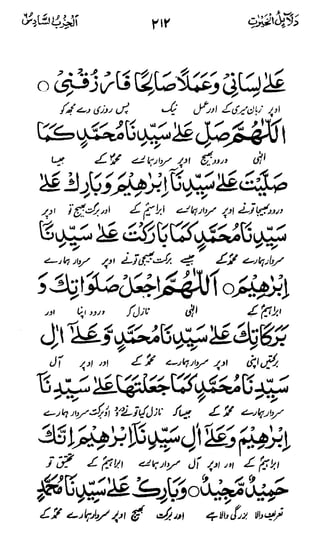 دلائل الخیرات ۲۱۲ الحزب السادس
عَلٰى لِسَانِيْ وَعَمَلًا صَالِحًا فَارْزُقْنِيْ ○
اوپر زبان میری کے اور عمل نیک پس روزی دے مجھ کو
اَللّٰهُمَّ صَلِّ عَلٰى سَيِّدِنَا مُحَمَّدٍ كَمَا
الٰہی درود بھیج اوپر سردار ہمارے محمدؐ کے جیسا
صَلَّيْتَ عَلٰى سَيِّدِنَا اِبْرٰهِيْمَ وَبَارِكْ عَلٰى
درود بھیجا تونے اوپر سردار ہمارے ابراہیمؑ کے اور برکت بھیج تو اوپر
سَيِّدِنَا مُحَمَّدٍ كَمَا بَارَكْتَ عَلٰى سَيِّدِنَا
سردار ہمارے محمدؐ کے جیسے برکت بھیجی تونے اوپر سردار ہمارے
اِبْرٰهِيْمَ ○ اَللّٰهُمَّ اجْعَلْ صَلَوَاتِكَ وَ
ابراہیمؑ کے الٰہی نازل کر درود اپنا اور
بَرَكَاتِكَ عَلٰى سَيِّدِنَا مُحَمَّدٍ وَّعَلٰى اٰلِ
برکتیں اپنی اوپر سردار ہمارے محمدؐ کے اور اوپر آل
سَيِّدِنَا مُحَمَّدٍ كَمَا جَعَلْتَهَا عَلٰى سَيِّدِنَا
سردار ہمارے محمدؐ کے جیسا کہ نازل کیا تونے درود و برکت سردار ہمارے
اِبْرٰهِيْمَ وَعَلٰى اٰلِ سَيِّدِنَا اِبْرٰهِيْمَ اِنَّكَ
ابراہیمؑ کے اور اوپر آل سردار ہمارے ابراہیمؑ کے تحقیق تو
حَمِيْدٌ مَّجِيْدٌ ○ وَبَارِكْ عَلٰى سَيِّدِنَا مُحَمَّدٍ
تعریف والا بزرگی والا ہے اور برکت بھیج اوپر سردار ہمارے محمدؐ کے